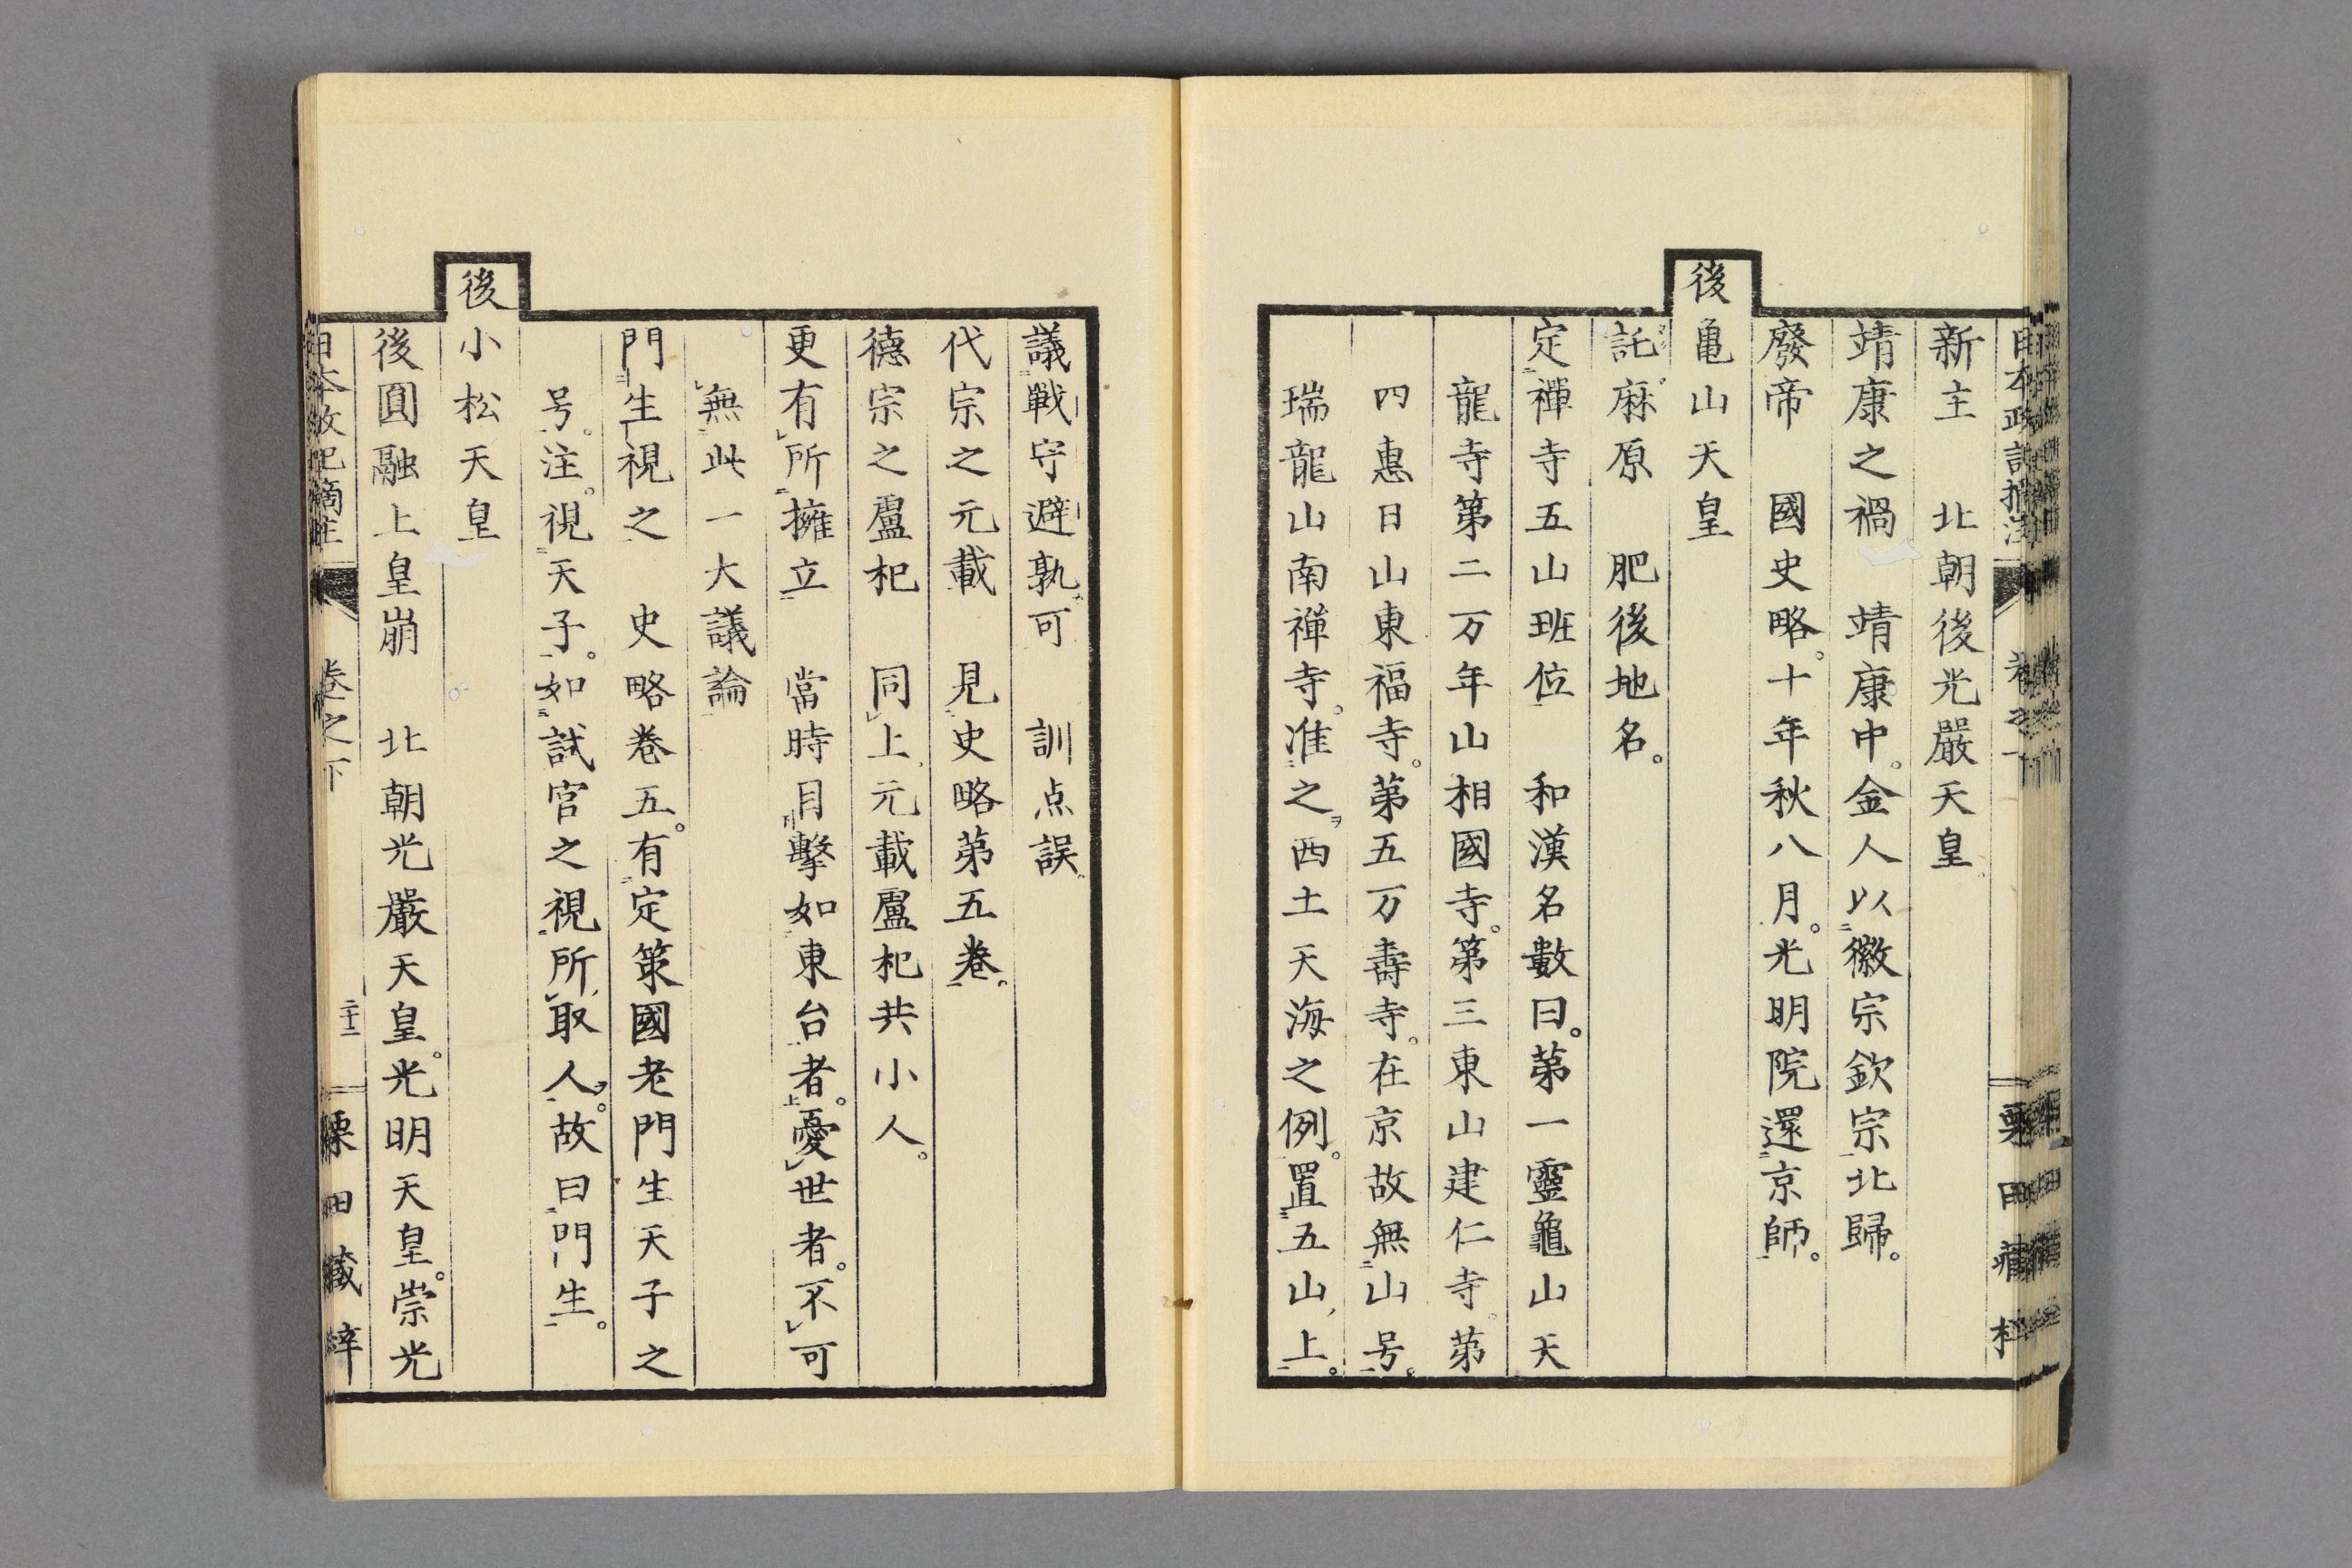 新主　北朝後光嚴天皇
靖康之禍　靖康中。金人以徽宗欽宗北歸。
廢帝　國史略。十年秋八月。光明院還京師。
後亀山天皇
託麻原　肥後地名。
定禪寺五山班位　和漢名數曰。第一靈龜山天
龍寺第二万年山相國寺。第三東山建仁寺。第
四惠日山東福寺。第五万壽寺。在京故無山号。
瑞龍山南禪寺。准之西土天海之例。置五山上。
議戰守避孰可　訓点誤
代宗之元載　見史略第五卷。
德宗之盧杞　同上元載盧杞共小人。
更有所擁立　當時目擊如東台者。憂世者。不可
無此一大議論
門生視之　史略卷五。有定策國老門生天子之
号。注。視天子。如試官之視所取人。故曰門生。
後小松天皇
後圓融上皇崩　北朝光嚴天皇。光明天皇。崇光
日本政記摘註　卷之下　二十二　栗田藏梓